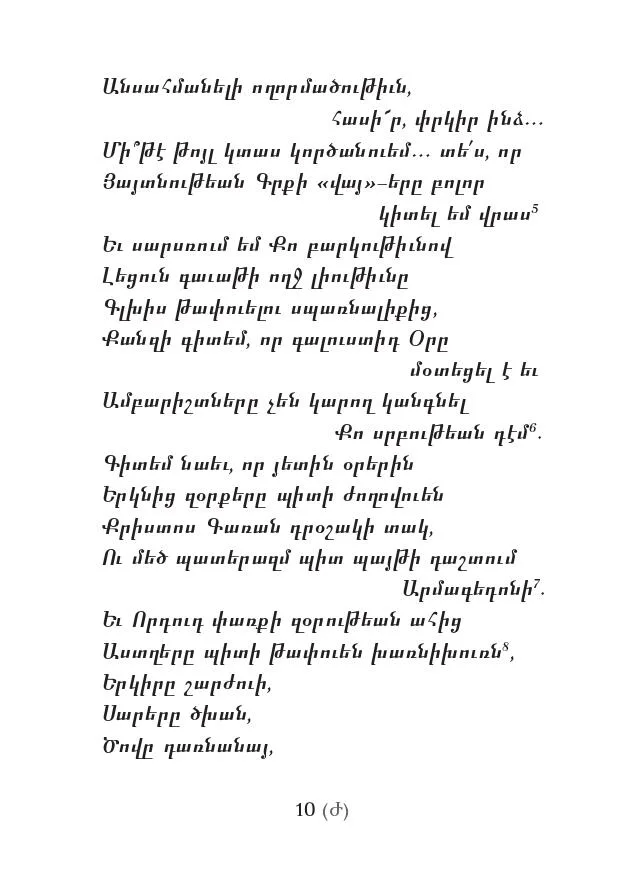 Անսահմանելի ողորմածութիւն,
հասի՜ր, փրկիր ինձ…
Մի՞թէ թոյլ կտաս կործանուեմ… տե՛ս, որ
Յայտնութեան Գրքի «վայ»–երը բոլոր
կիտել եմ վրաս⁵
Եւ սարսռում եմ Քո բարկութիւնով
Լեցուն գաւաթի ողջ լիութիւնը
Գլխիս թափուելու սպառնալիքից,
Քանզի գիտեմ, որ գալուստիդ Օրը
մօտեցել է եւ
Ամբարիշտները չեն կարող կանգնել
Քո սրբութեան դէմ⁶.
Գիտեմ նաեւ, որ յետին օրերին
Երկնից զօրքերը պիտի ժողովուեն
Քրիստոս Գառան դրօշակի տակ,
Ու մեծ պատերազմ պիտ պայթի դաշտում
Արմագեդոնի⁷.
Եւ Որդուդ փառքի զօրութեան ահից
Աստղերը պիտի թափուեն խառնիխուռն⁸,
Երկիրը շարժուի,
Սարերը ծխան,
Ծովը դառնանայ,
10 (Ժ)